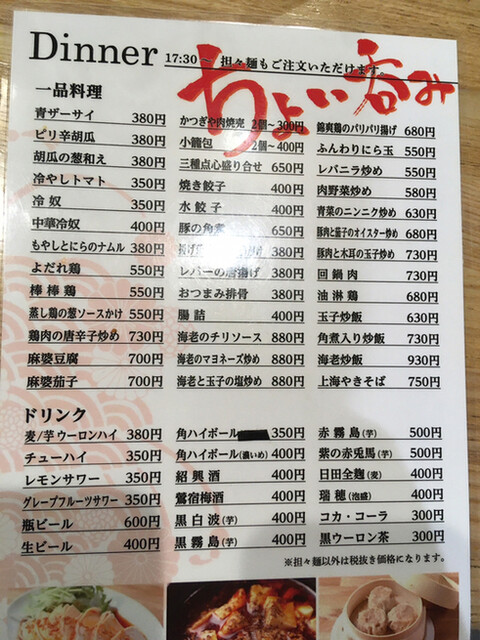 Dinner 17:30～ 担々麺もご注文いただけます。
ちょい呑み
一品料理
青ザーサイ 380円
ピリ辛胡瓜 380円
胡瓜の葱和え 380円
冷やしトマト 350円
冷奴 350円
中華冷奴 400円
もやしとにらのナムル 380円
よだれ鶏 550円
棒棒鶏 550円
蒸し鶏の葱ソースかけ 550円
鶏肉の唐辛子炒め 730円
麻婆豆腐 700円
麻婆茄子 700円
かつぎや肉焼売 2個～300円
小籠包 2個～400円
三種点心盛り合せ 650円
焼き餃子 400円
水餃子 400円
豚の角煮 650円
380円
レバーの唐揚げ 380円
おつまみ排骨 400円
腸詰 400円
海老のチリソース 880円
海老のマヨネーズ炒め 880円
海老と玉子の塩炒め 880円
錦爽鶏のパリパリ揚げ 680円
ふんわりにら玉 550円
レバニラ炒め 550円
肉野菜炒め 580円
青菜のニンニク炒め 630円
豚肉と茄子のオイスター炒め 680円
豚肉と木耳の玉子炒め 730円
回鍋肉 730円
油淋鶏 680円
玉子炒飯 630円
角煮入り炒飯 730円
海老炒飯 930円
上海やきそば 750円
ドリンク
麦/芋ウーロンハイ 380円
チューハイ 350円
レモンサワー 350円
グレープフルーツサワー 350円
瓶ビール 600円
生ビール 400円
角ハイボール 350円
角ハイボール(濃いめ) 400円
紹興酒 400円
鶯宿梅酒 400円
黒白波(芋) 400円
黒霧島(芋) 400円
赤霧島(芋) 500円
紫の赤兎馬(芋) 500円
日田全麹(麦) 400円
瑞穂(泡盛) 400円
コカ・コーラ 300円
黒ウーロン茶 300円
※担々麺以外は税抜き価格になります。